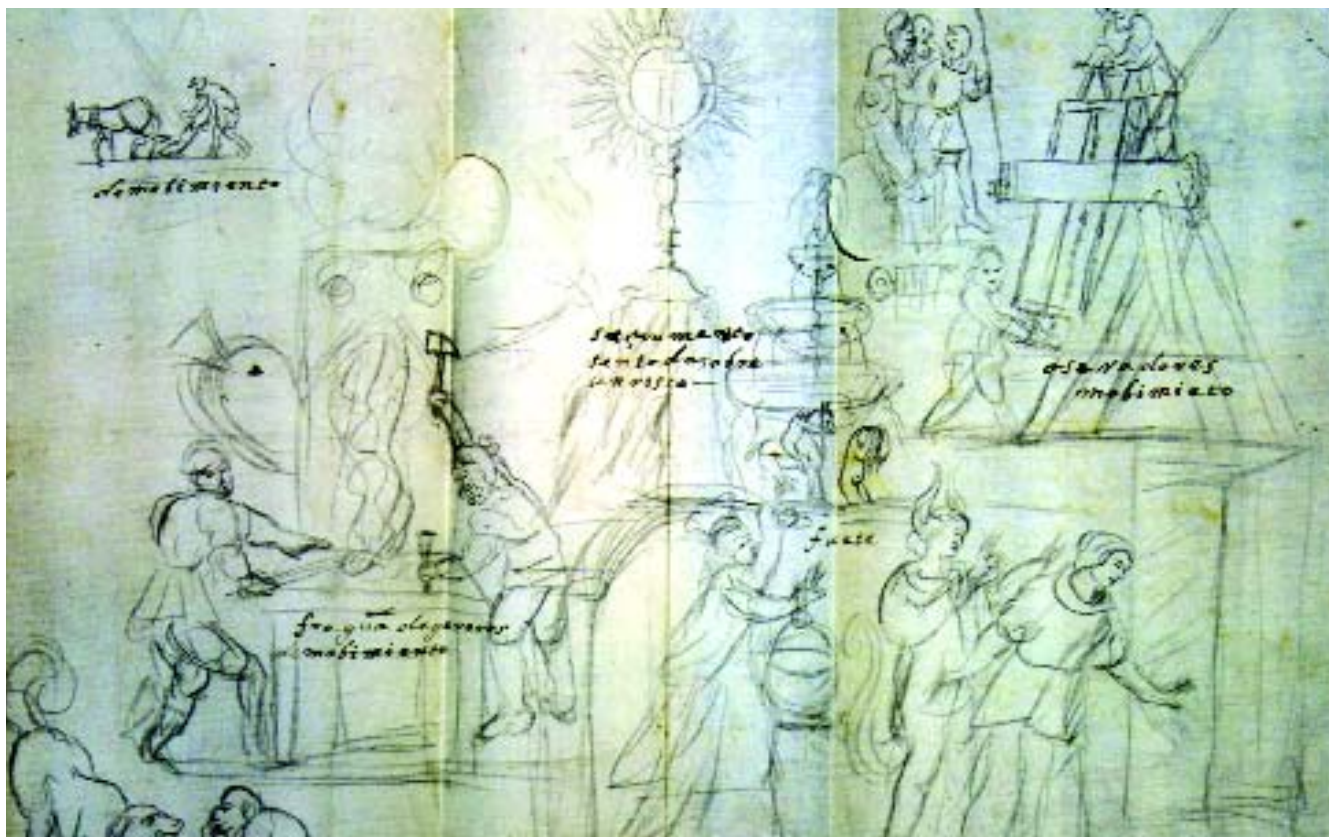 de mobimiento
sacramento
sentado sobre
un risco
aseradores
mobimiato
fuete
fragua de gereros
de mobimiento